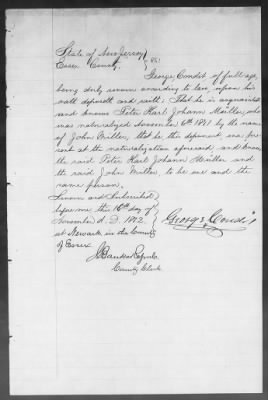 State of New Jersey
Essex County. ss:
George Condit of full age,
being duly sworn according to law upon his
oath deposeth and saith: That he is acquainted
and knows Peter Karl Johann Mailler, who
was naturalized November 6th 1871 by the name
of John Miller, that he the deponent was pre-
sent at the naturalization aforesaid and knows
the said Peter Karl Johann Mailler and
the said John Miller, to be one and the
same person.
Sworn and Subscribed
before me this 16th day of
November A.D. 1872
at Newark in the County
of Essex
George Condit
County Clerk